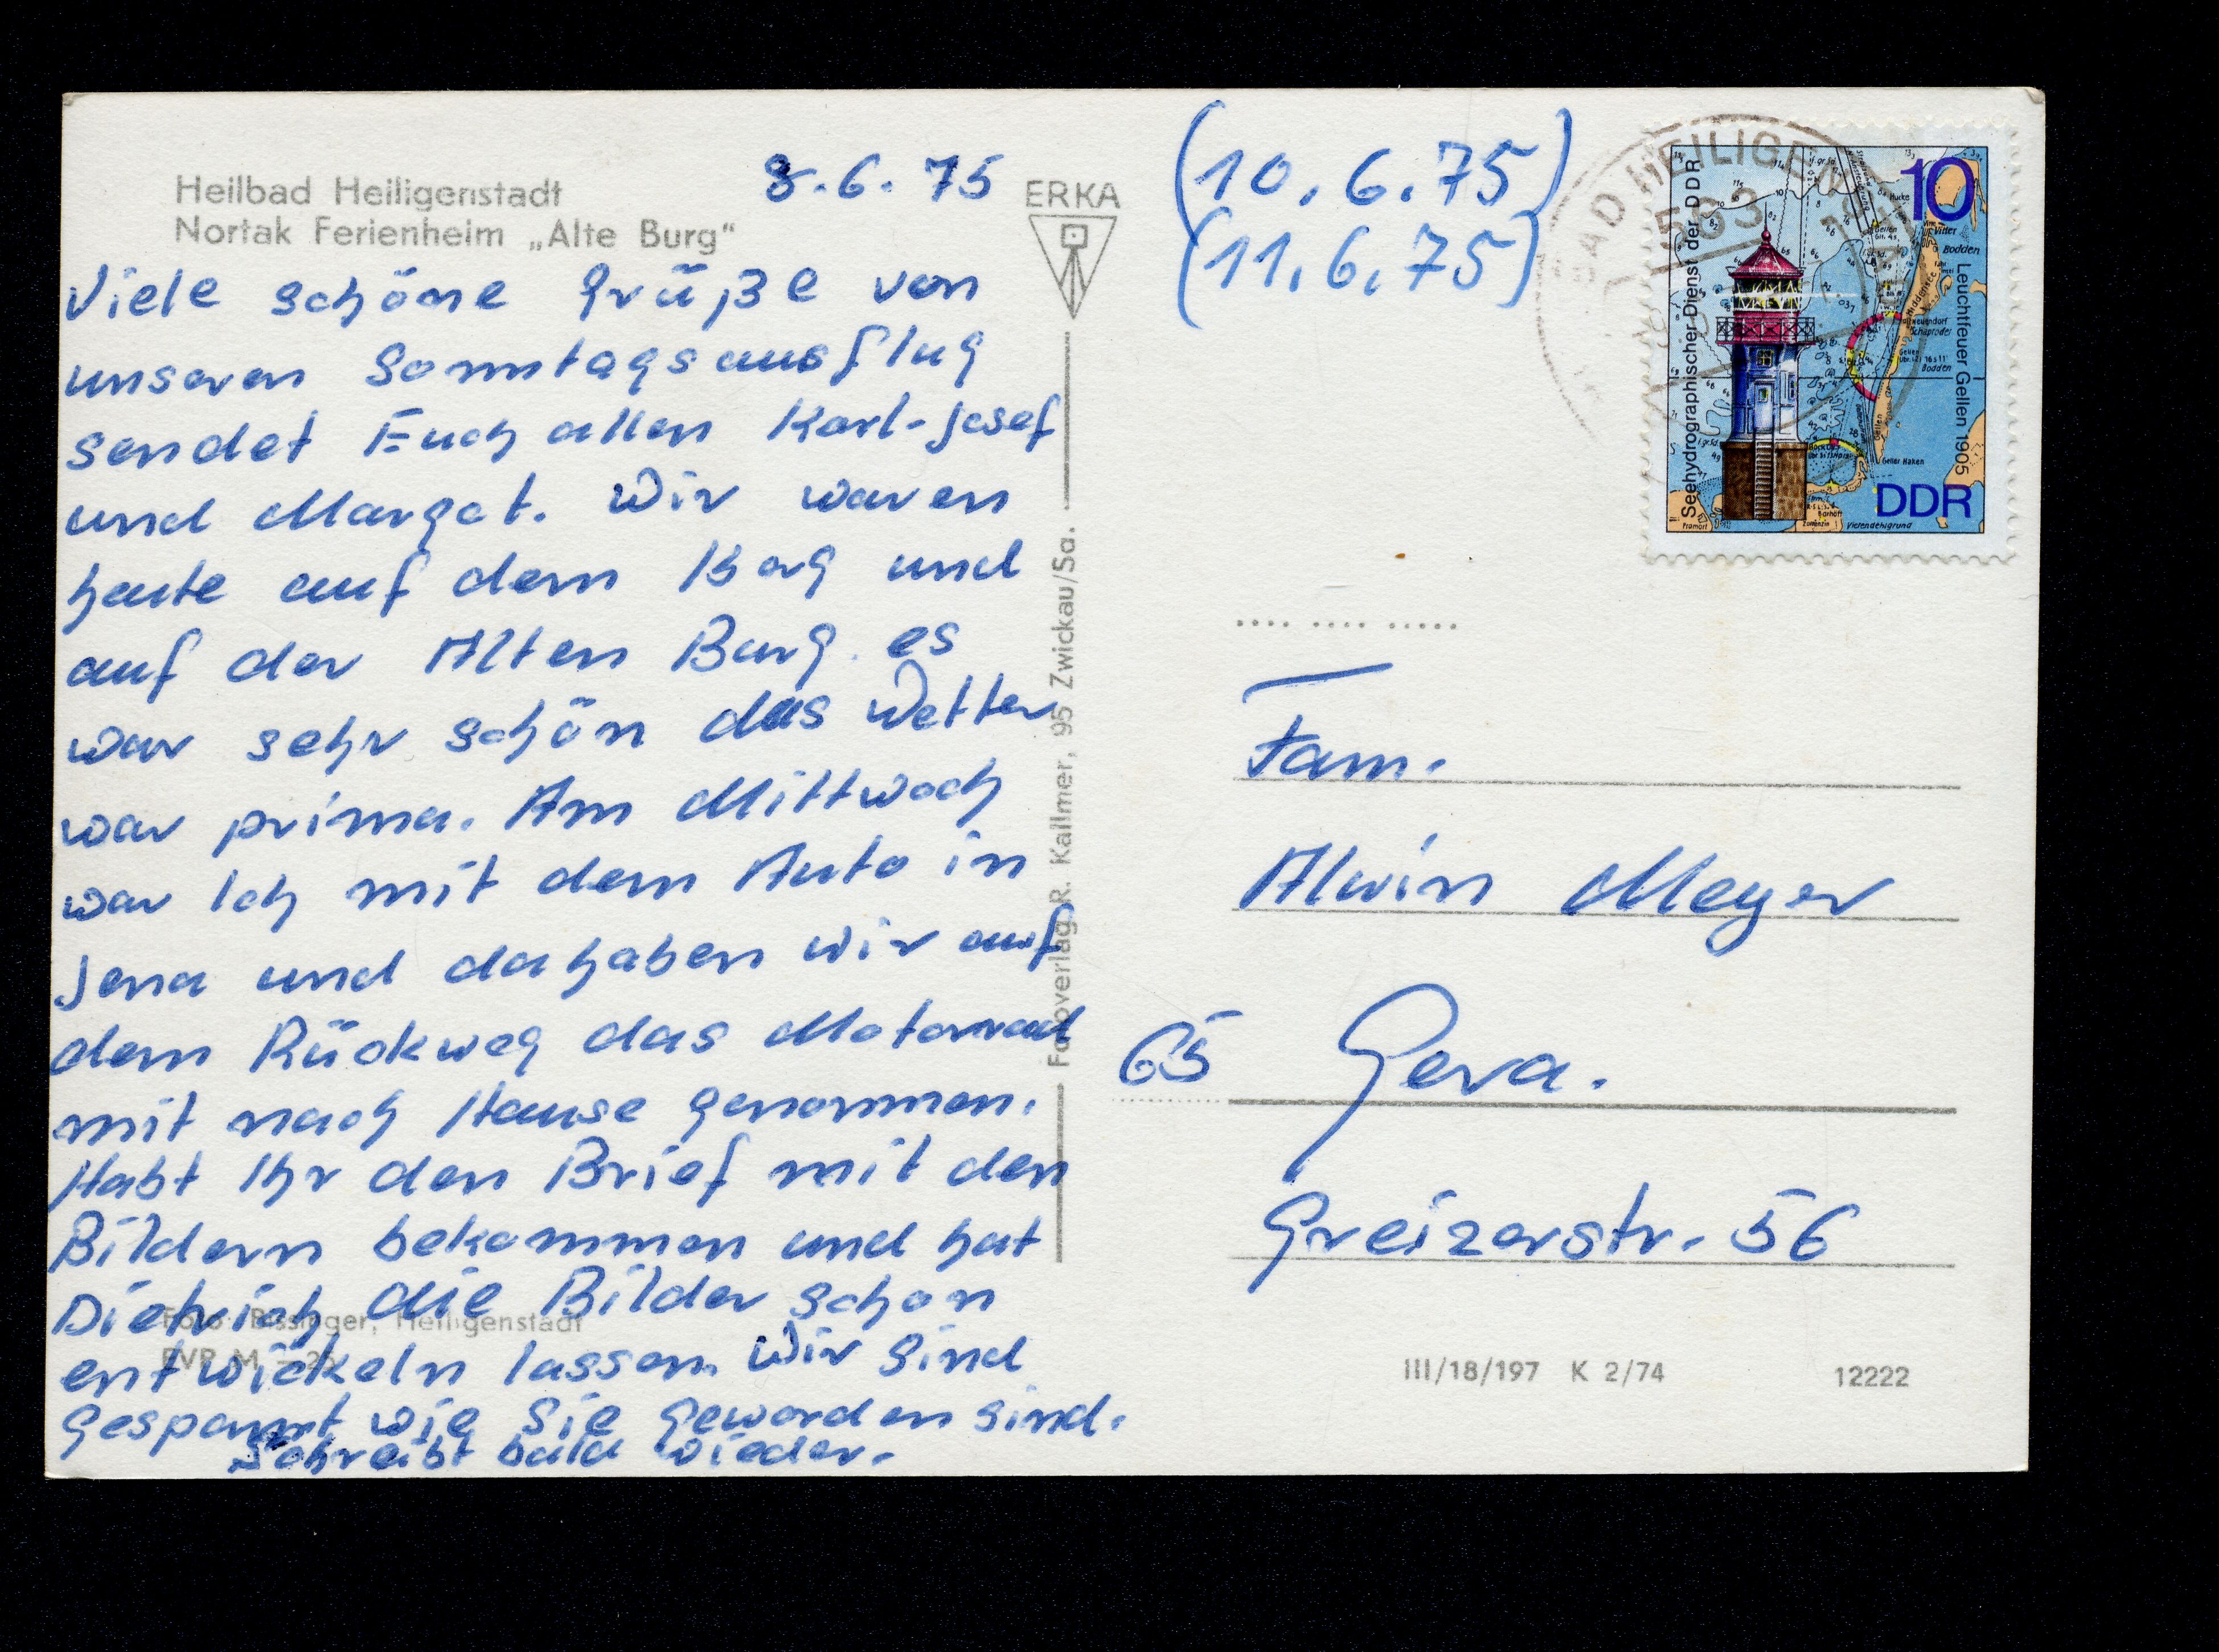 Heilbad Heiligenstadt
Nortak Ferienheim „Alte Burg“
8.6.75
Viele schöne Grüße von
unseren Sonntagsausflug
sendet Euch allen Karl-Josef
und Margot. Wir waren
heute auf dem Berg und
auf der Alten Burg. es
war sehr schön das Wetter
war prima. Am Mittwoch
war Ich mit dem Auto in
Jena und da haben wir auf
dem Rückweg das Motorrad
mit nach Hause genommen.
Habt Ihr den Brief mit den
Bildern bekommen und hat
Dietrich die Bilder schon
entwickeln lassen. Wir sind
gespannt wie Sie geworden sind.
Schreibt bald wieder.
Foto: Bissinger, Heiligenstadt
EVP M
ERKA
Fotoverlag R. Kallmer, 95 Zwickau/Sa.
(10.6.75)
(11.6.75)
BAD HEILIGEN
Seehydrographischer Dienst der DDR
10
Leuchtfeuer Gellen 1905
DDR
Vitter
Bodden
Geller Haken
Vierendehlgrund
Barhöft
Pramort
Fam.
Alwin Meyer
65 Gera.
Greizerstr. 56
III/18/197 K 2/74
12222